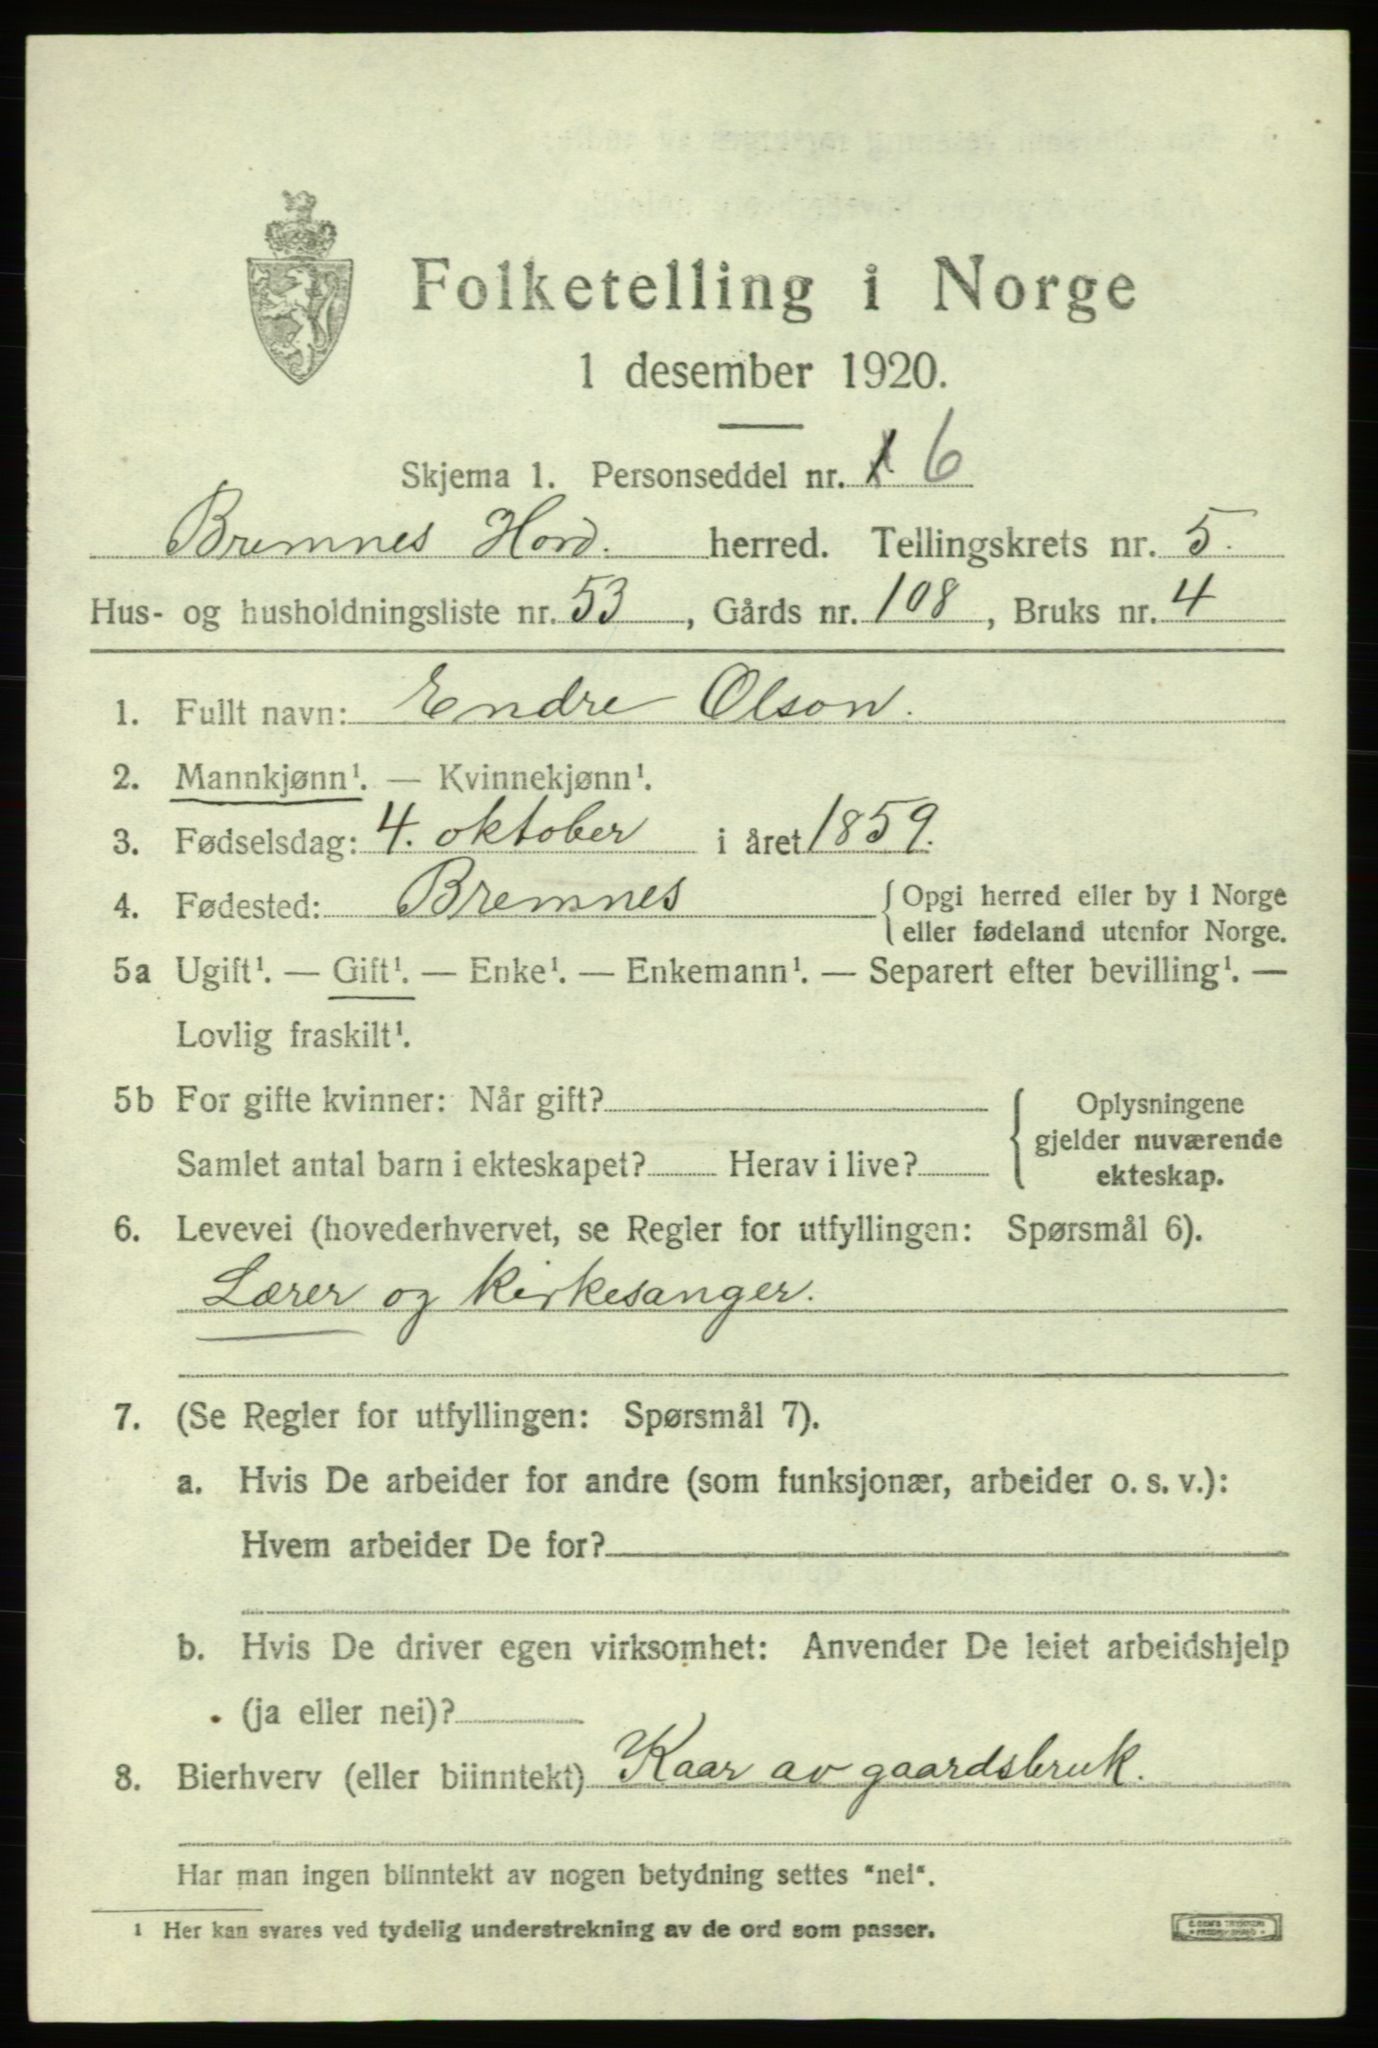 Folketelling i Norge
1 desember 1920.
Skjema 1. Personseddel nr. 6
Bremnes Hord. herred. Tellingskrets nr. 5.
Hus- og husholdningsliste nr. 53, Gårds nr. 108, Bruks nr. 4
1. Fullt navn: Endre Olson.
2. Mannkjønn¹. — Kvinnekjønn¹.
3. Fødselsdag: 4. oktober i året 1859.
4. Fødested: Bremnes { Opgi herred eller by i Norge
eller fødeland utenfor Norge.
5a Ugift¹. — Gift¹. — Enke¹. — Enkemann¹. — Separert efter bevilling¹. —
Lovlig fraskilt¹.
5b For gifte kvinner: Når gift?
Samlet antal barn i ekteskapet? Herav i live?
Oplysningene
gjelder nuværende
ekteskap.
6. Levevei (hovederhvervet, se Regler for utfyllingen: Spørsmål 6).
Lærer og kirkesanger.
7. (Se Regler for utfyllingen: Spørsmål 7).
a. Hvis De arbeider for andre (som funksjonær, arbeider o. s. v.):
Hvem arbeider De for?
b. Hvis De driver egen virksomhet: Anvender De leiet arbeidshjelp
(ja eller nei)?
8. Bierhverv (eller biinntekt) Kaar av gaardsbruk.
Har man ingen biinntekt av nogen betydning settes "nei".
¹ Her kan svares ved tydelig understrekning av de ord som passer.